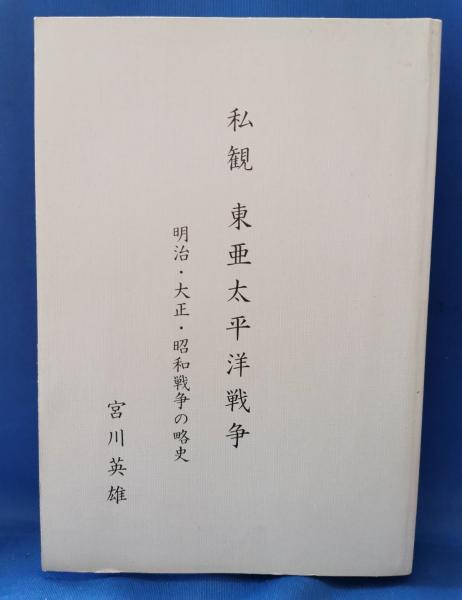 私観 東亜太平洋戦争
明治・大正・昭和戦争の略史
宮川英雄